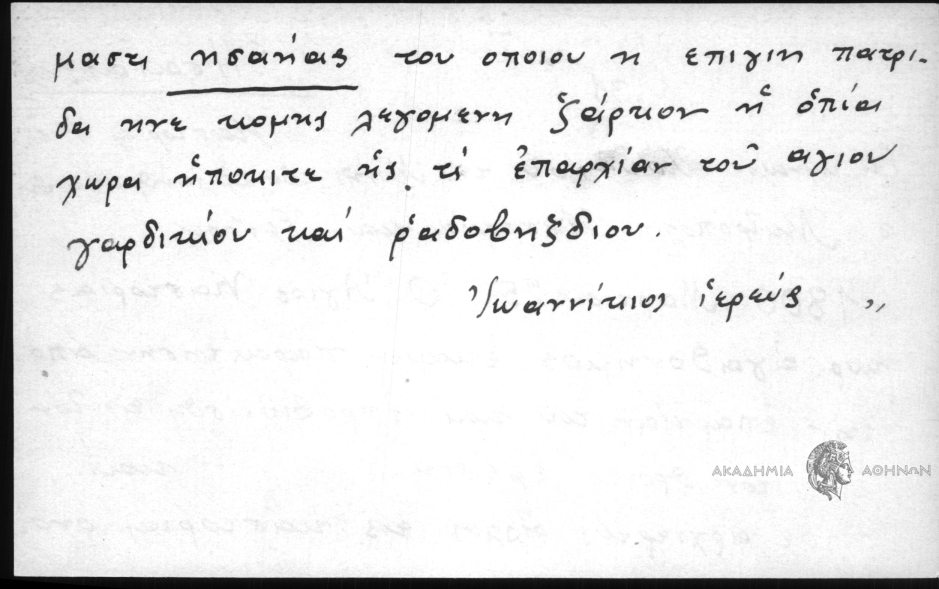 μαστι ησαήας του οποιου η επιγιη πατρι-
δα ηνε κομης λεγομενη ἐξάρκον ἡ ὁπία
χωρα ἤποκιτε ἡς τὶ ἐπαρχίαν τοῦ αγιου
γαρδικίου καί ῥαδοβηξδιου.
Ἰωαννίκιος ἱερεύς „
ΑΚΑΔΗΜΙΑ ΑΘΗΝΩΝ